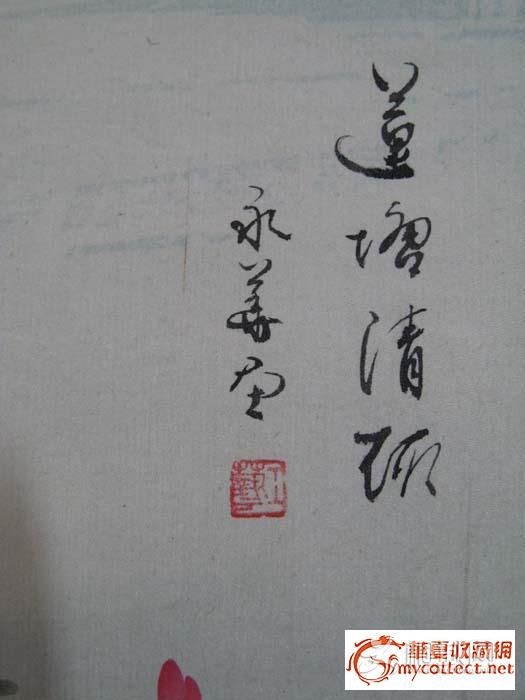 蓮塘清
永華画
華夏收藏網
mycollect.net